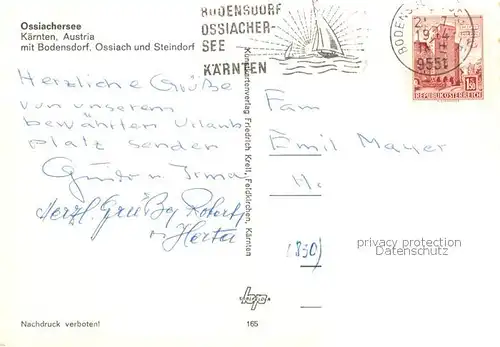 Ossiachersee
Kärnten, Austria
mit Bodensdorf, Ossiach und Steindorf
BODENSDORF
OSSIACHER-
SEE
KÄRNTEN
BODENS
9551
REPUBLIK ÖSTERREICH
Herzliche Grüße
von unserem
bewährten Urlaub
platz senden
Guido u. Irma
Herzl. Grüße Robert
u. Herta
Kunstkartenverlag Friedrich Krell, Feldkirchen, Kärnten
Fam
Emil Mayer
privacy protection
Datenschutz
Nachdruck verboten!
165